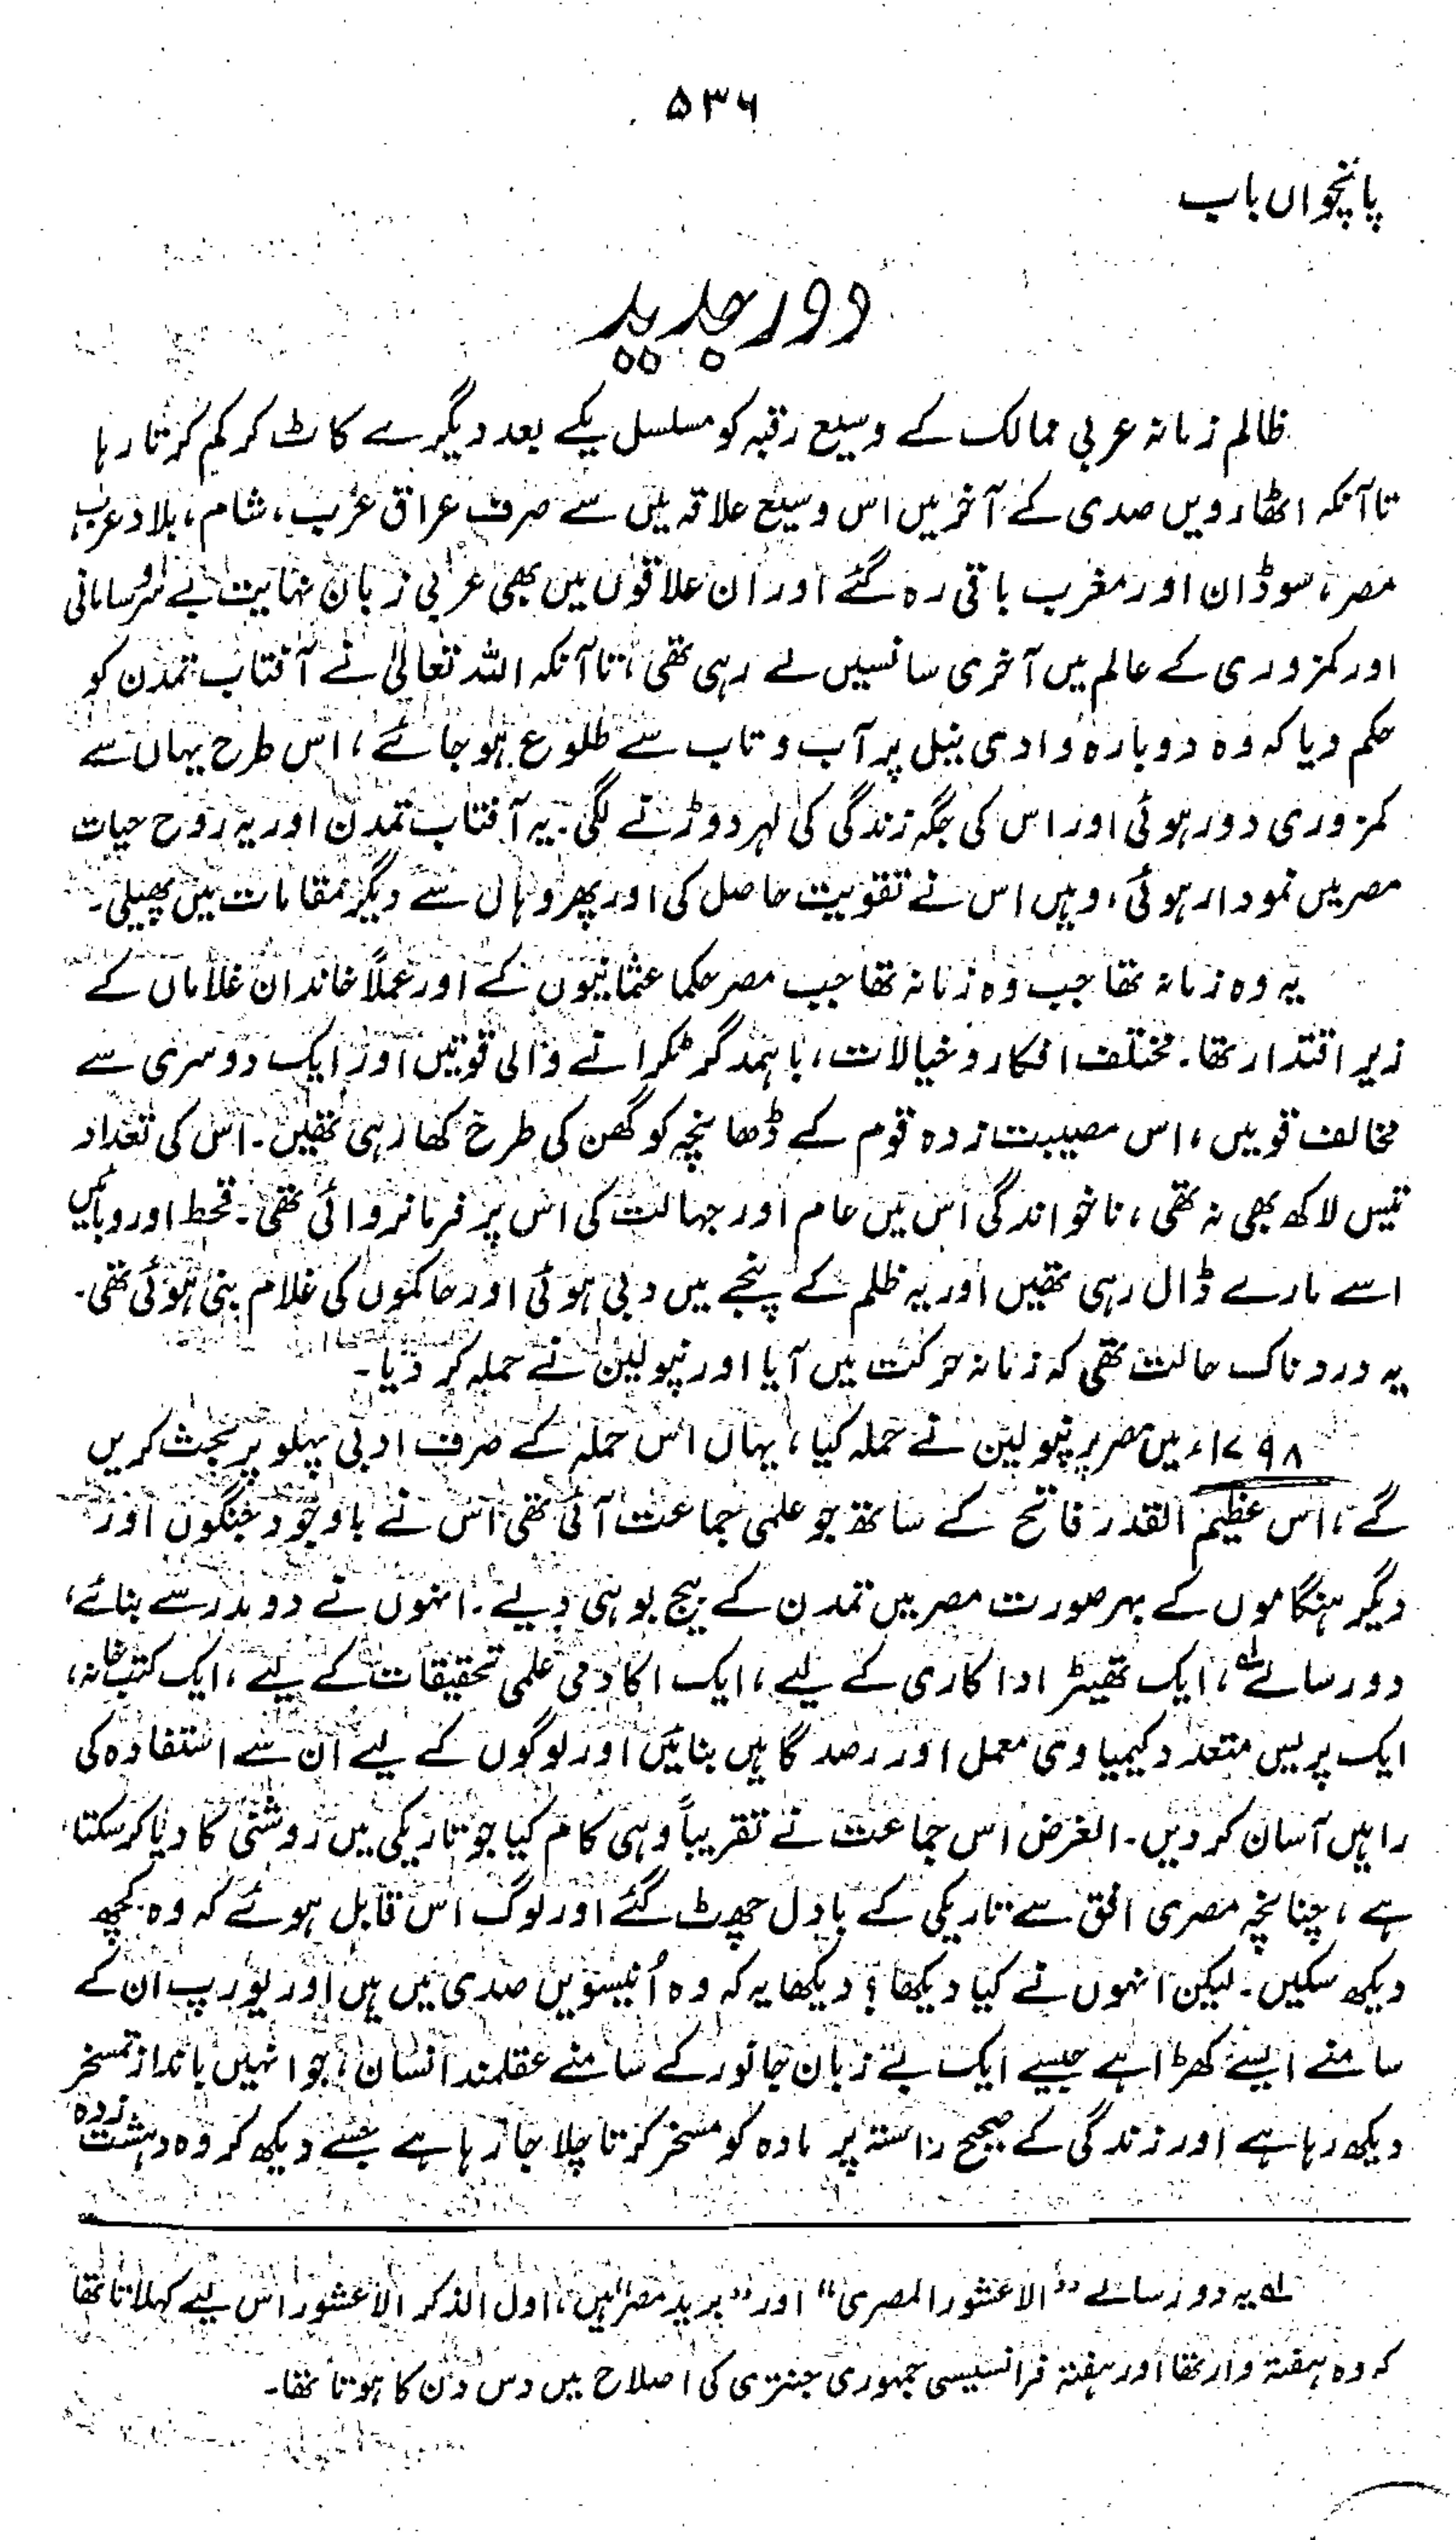 ۵۳۶
پانچواں باب
دور جدید
ظالم زمانہ عربی ممالک کے وسیع رقبہ کو مسلسل یکے بعد دیگرے کاٹ کر کم کرتا رہا
تاآنکہ اٹھارویں صدی کے آخر میں اس وسیع علاقہ میں سے صرف عراق عرب، شام، بلاد عرب،
مصر، سوڈان اور مغرب باقی رہ گئے اور ان علاقوں میں بھی عربی زبان نہایت بے سروسامانی
اور کمزوری کے عالم میں آخری سانسیں لے رہی تھی، تاآنکہ اللہ تعالیٰ نے آفتاب تمدن کو
حکم دیا کہ وہ دوبارہ وادی نیل پر آب و تاب سے طلوع ہو جائے، اس طرح یہاں سے
کمزوری دور ہوئی اور اس کی جگہ زندگی کی لہر دوڑنے لگی۔ یہ آفتاب تمدن اور یہ روح حیات
مصر میں نمودار ہوئی، وہیں اس نے تقویت حاصل کی اور پھر وہاں سے دیگر مقامات میں پھیلی۔
یہ وہ زمانہ تھا جب وہ زمانہ تھا جب مصر حکما عثمانیوں کے اور عملاً خاندان غلاماں کے
زیر اقتدار تھا۔ مختلف افکار و خیالات، باہمدگر ٹکرانے والی قوتیں اور ایک دوسری سے
مخالف قومیں، اس مصیبت زدہ قوم کے ڈھانچہ کو گھن کی طرح کھا رہی تھیں۔ اس کی تعداد
تیس لاکھ بھی نہ تھی، ناخواندگی اس میں عام اور جہالت کی اس پر فرمانروائی تھی۔ قحط اور وبائیں
اسے مارے ڈال رہی تھیں اور یہ ظلم کے پنجے میں دبی ہوئی اور حاکموں کی غلام بنی ہوئی تھی۔
یہ دردناک حالت تھی کہ زمانہ حرکت میں آیا اور نپولین نے حملہ کر دیا۔
۱۷۹۸ء میں مصر پر نپولین نے حملہ کیا، یہاں اس حملہ کے صرف ادبی پہلو پر بحث کریں
گے، اس عظیم القدر فاتح کے ساتھ جو علمی جماعت آئی تھی اس نے باوجود جنگوں اور
دیگر ہنگاموں کے بہرصورت مصر میں تمدن کے بیج بو ہی دیے۔ انہوں نے دو مدرسے بنائے،
دو رسالے لہ، ایک تھیٹر اداکاری کے لیے، ایک اکادمی علمی تحقیقات کے لیے، ایک کتب خانہ،
ایک پریس متعدد کیمیاوی معمل اور رصد گاہیں بنائیں اور لوگوں کے لیے ان سے استفادہ کی
راہیں آسان کر دیں۔ الغرض اس جماعت نے تقریباً وہی کام کیا جو تاریکی میں روشنی کا دیا کر سکتا
ہے، چنانچہ مصری افق سے تاریکی کے بادل چھٹ گئے اور لوگ اس قابل ہوئے کہ وہ کچھ
دیکھ سکیں۔ لیکن انہوں نے کیا دیکھا؟ دیکھا یہ کہ وہ اُنیسویں صدی میں ہیں اور یورپ ان کے
سامنے ایسے کھڑا ہے جیسے ایک بے زبان جانور کے سامنے عقلمند انسان، جو انہیں بانداز تمسخر
دیکھ رہا ہے اور زندگی کے صحیح راستہ پر مادہ کو مسخر کرتا چلا جا رہا ہے جسے دیکھ کر وہ دہشت زدہ
لہ یہ دو رسالے "الاعشور المصری" اور "برید مصر" ہیں، اول الذکر الاعشور اس لیے کہلاتا تھا
کہ وہ ہفتہ وار تھا اور ہفتہ فرانسیسی جمہوری جنتری کی اصلاح میں دس دن کا ہوتا تھا۔